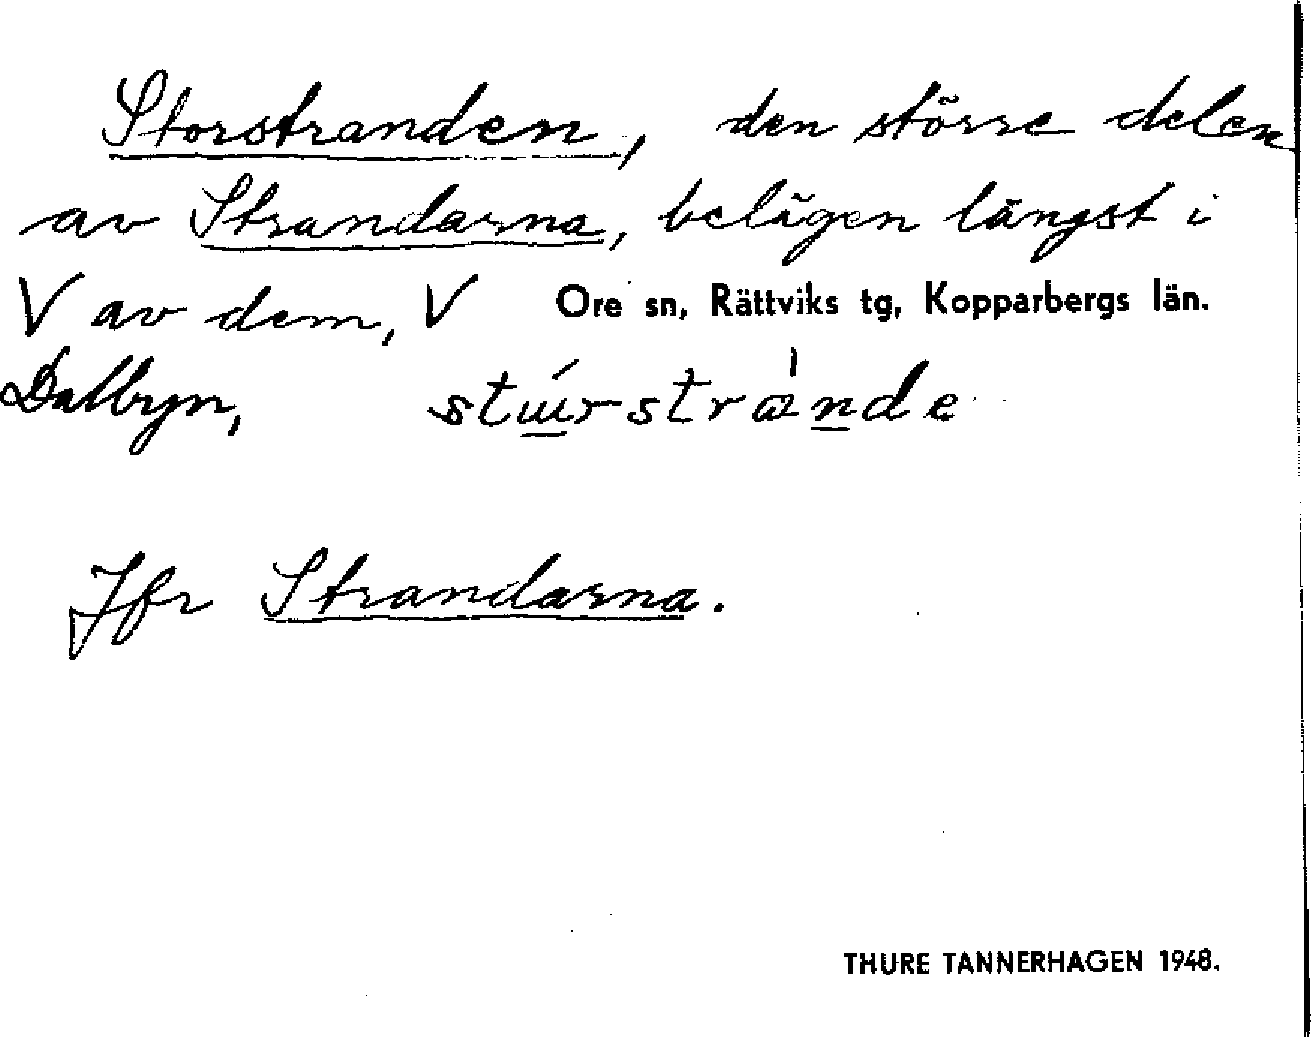 Storstranden, den större delen
av Strandarna, belägen längst i
V av dem, V Ore sn, Rättviks tg, Kopparbergs län.
Dalbyn,
Jfr Strandarna.
THURE TANNERHAGEN 1948.